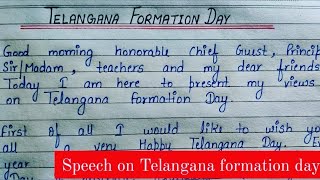 TELANGANA FORMATION DAY
Good morning honorable Chief Guest, Princip
Sir/Madam, teachers and my dear friends
Today I am here to present my views
on Telangana Formation Day.
First of all I would like to wish you
all a very Happy Telangana Day. E
year
Day
Speech on Telangana formation day